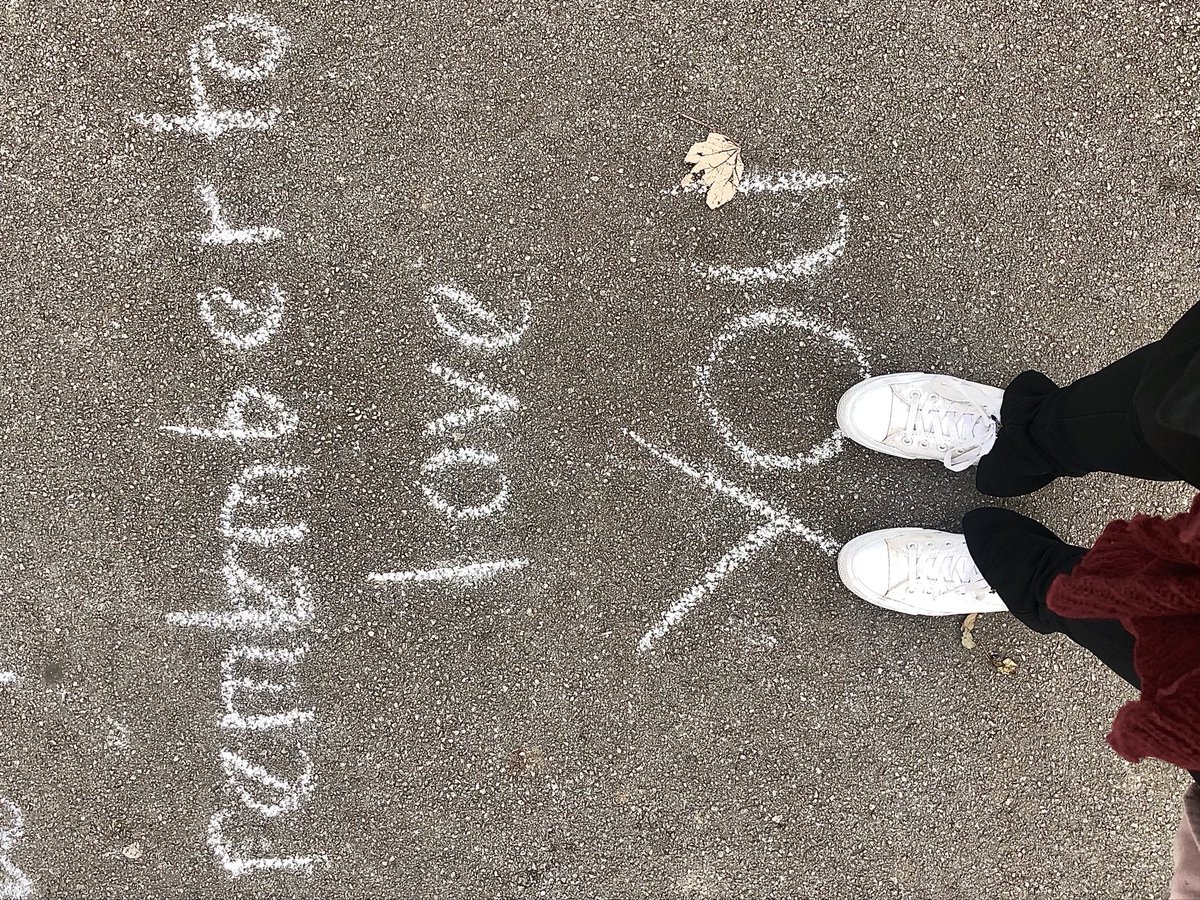 remember to
love
you